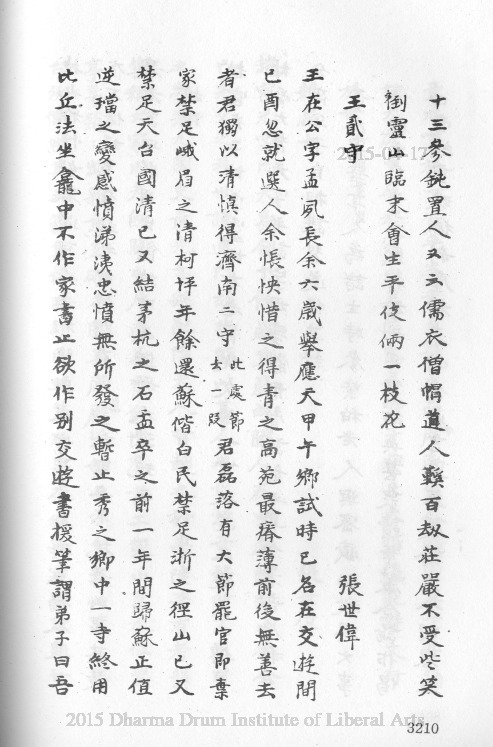 十三參鈍置人又云儒衣僧帽道人鞵百劫莊嚴不受些笑
倒靈山臨末會生平伎倆一枝花
王貳守 張世偉
王在公字孟夙長余六歲舉應天甲午鄉試時已名在交遊間
已酉忽就選人余悵怏惜之得青之高苑最瘠薄前後無善去
者君獨以清慎得濟南二守此處節去一段君磊落有大節罷官即棄
家禁足峨眉之清柯坪年餘還蘇偕白民禁足浙之徑山已又
禁足天台國清已又結茅杭之石盂卒之前一年間歸蘇正值
逆璫之變感憤涕洟忠憤無所發之暫止秀之鄉中一寺終用
比丘法坐龕中不作家書止欲作別交遊書援筆謂弟子曰吾
2015 Dharma Drum Institute of Liberal Arts
3210